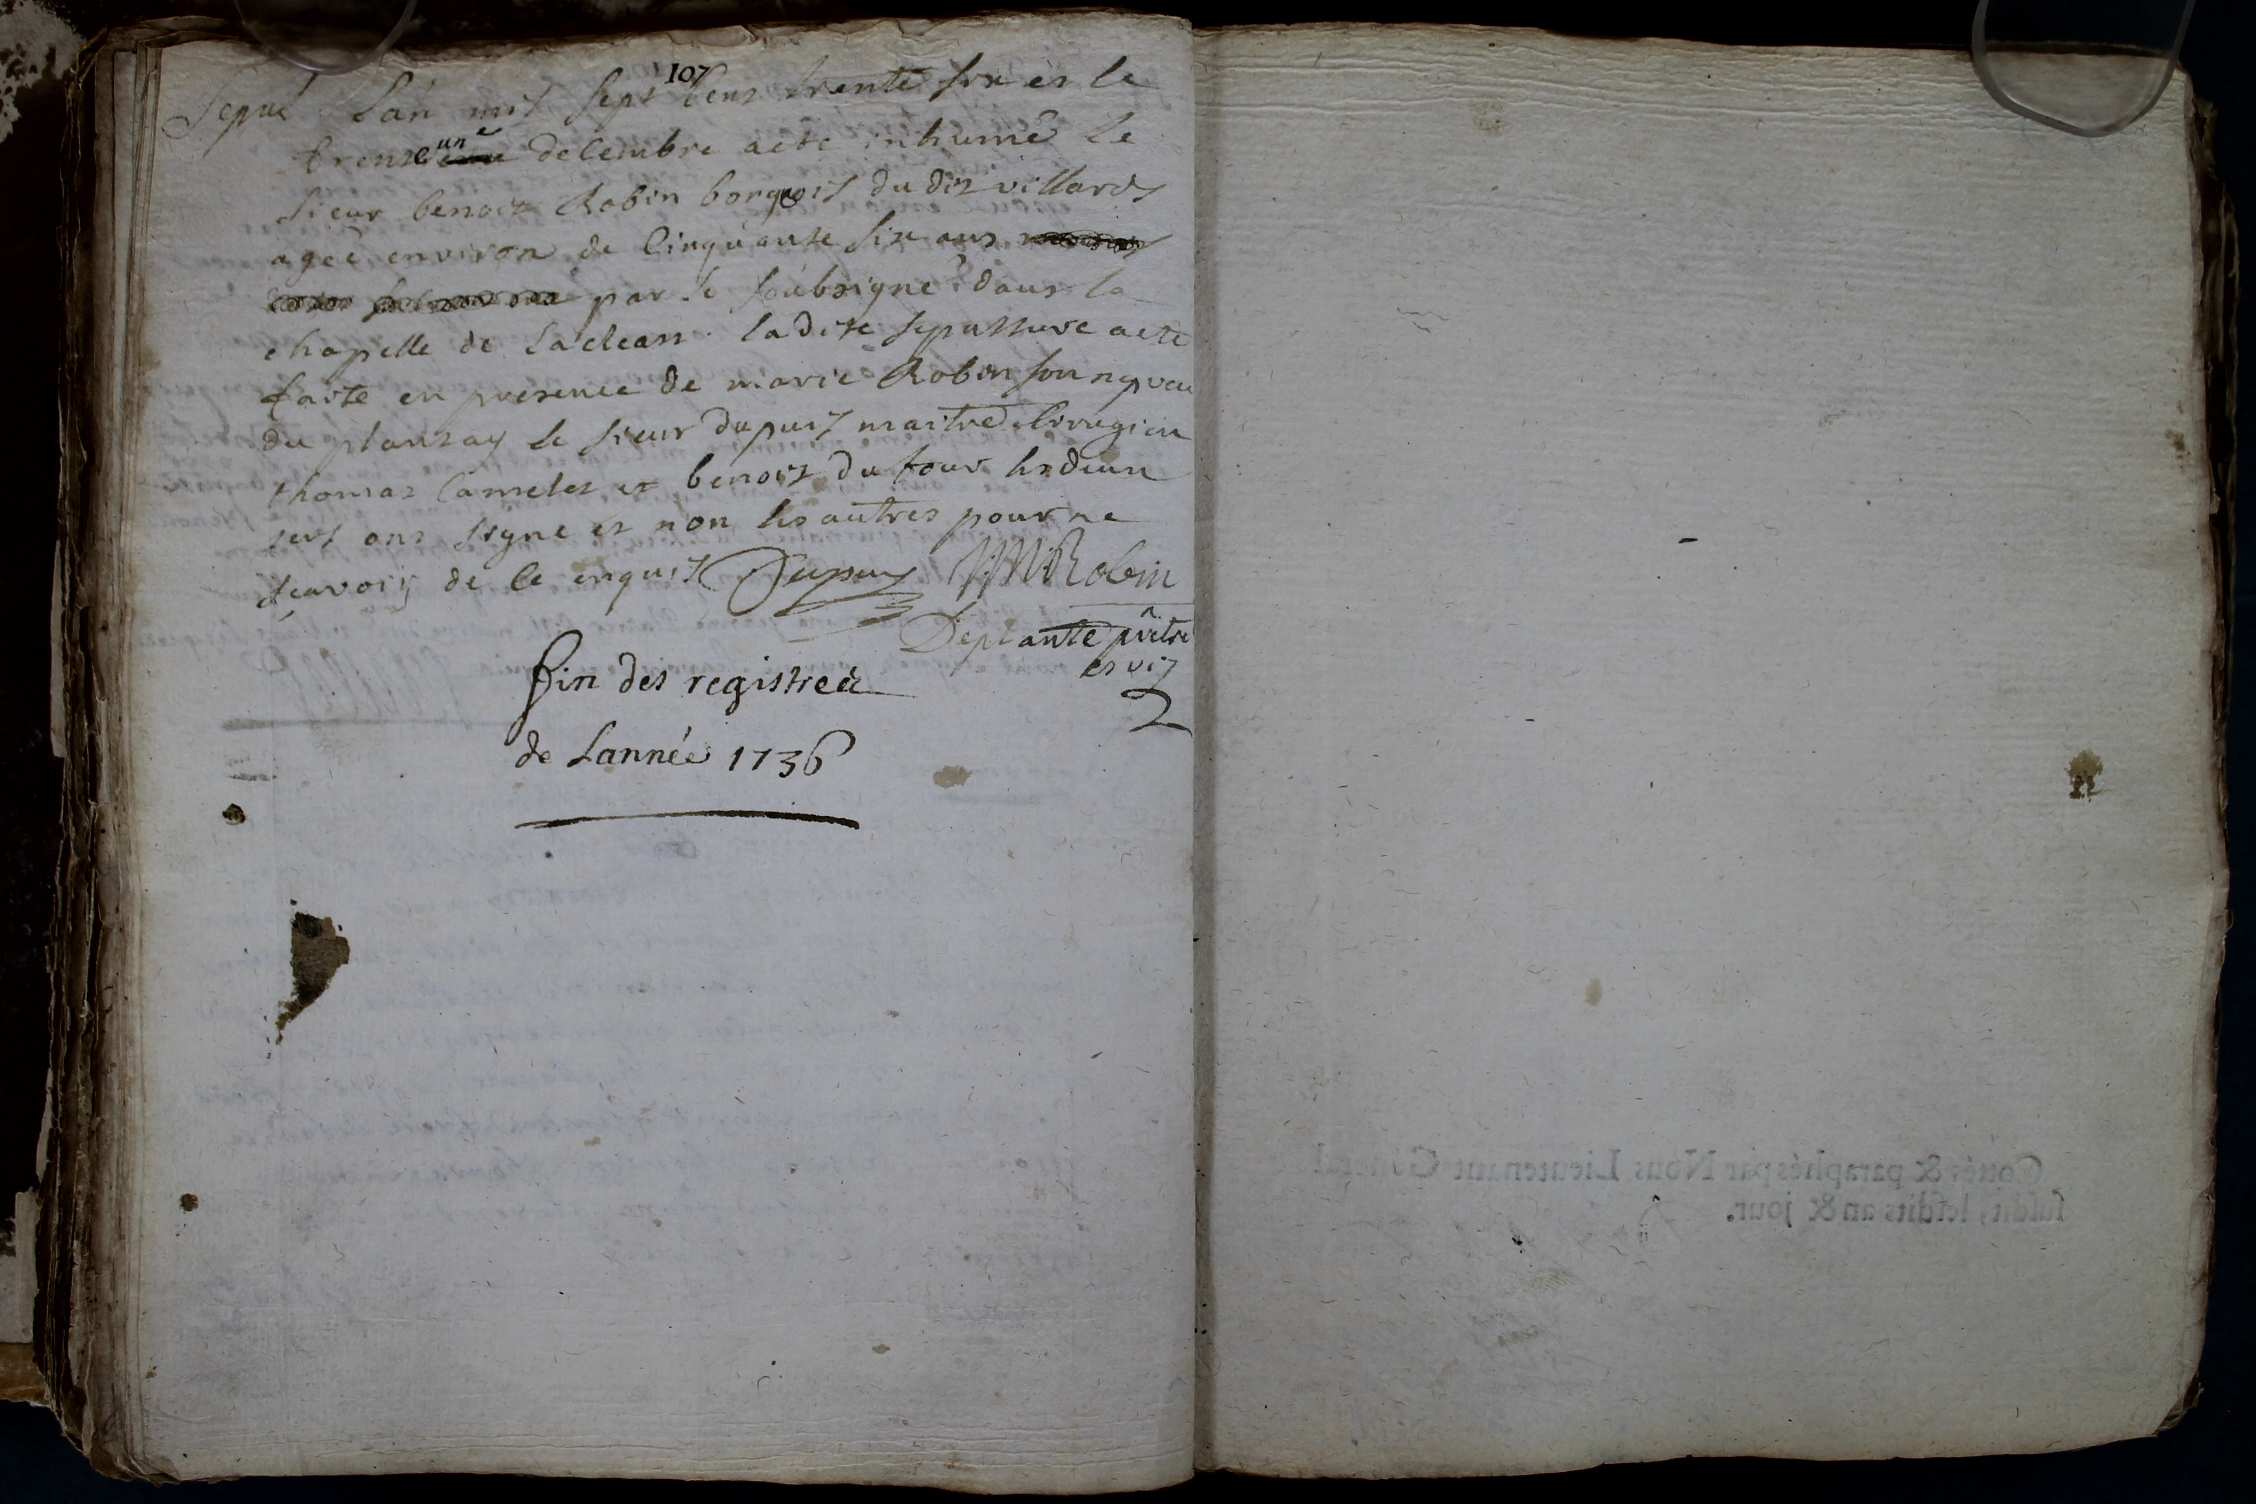 107
Sepul Lan mil sept cens trente six et le
trente un decembre a ete inhumé le
sieur benoit Robin borgois du dit villards
agée environ de Cinquante six ans
par le soubsigné dans la
chapelle de ladite sepulture a ete
faite en presence de marie Robin son nepveu
du plantay le sieur dupuis maitre cirurgien
thomas Camelet et benoist du four
ont signé et non les autres pour ne
sçavoir de ce enquis Dupuy Robin
Deplante prêtre
et vic
fin des registres
de Lannée 1736
Cottés & paraphés par Nous Lieutenant Général
susdit, lesdits an & jour.